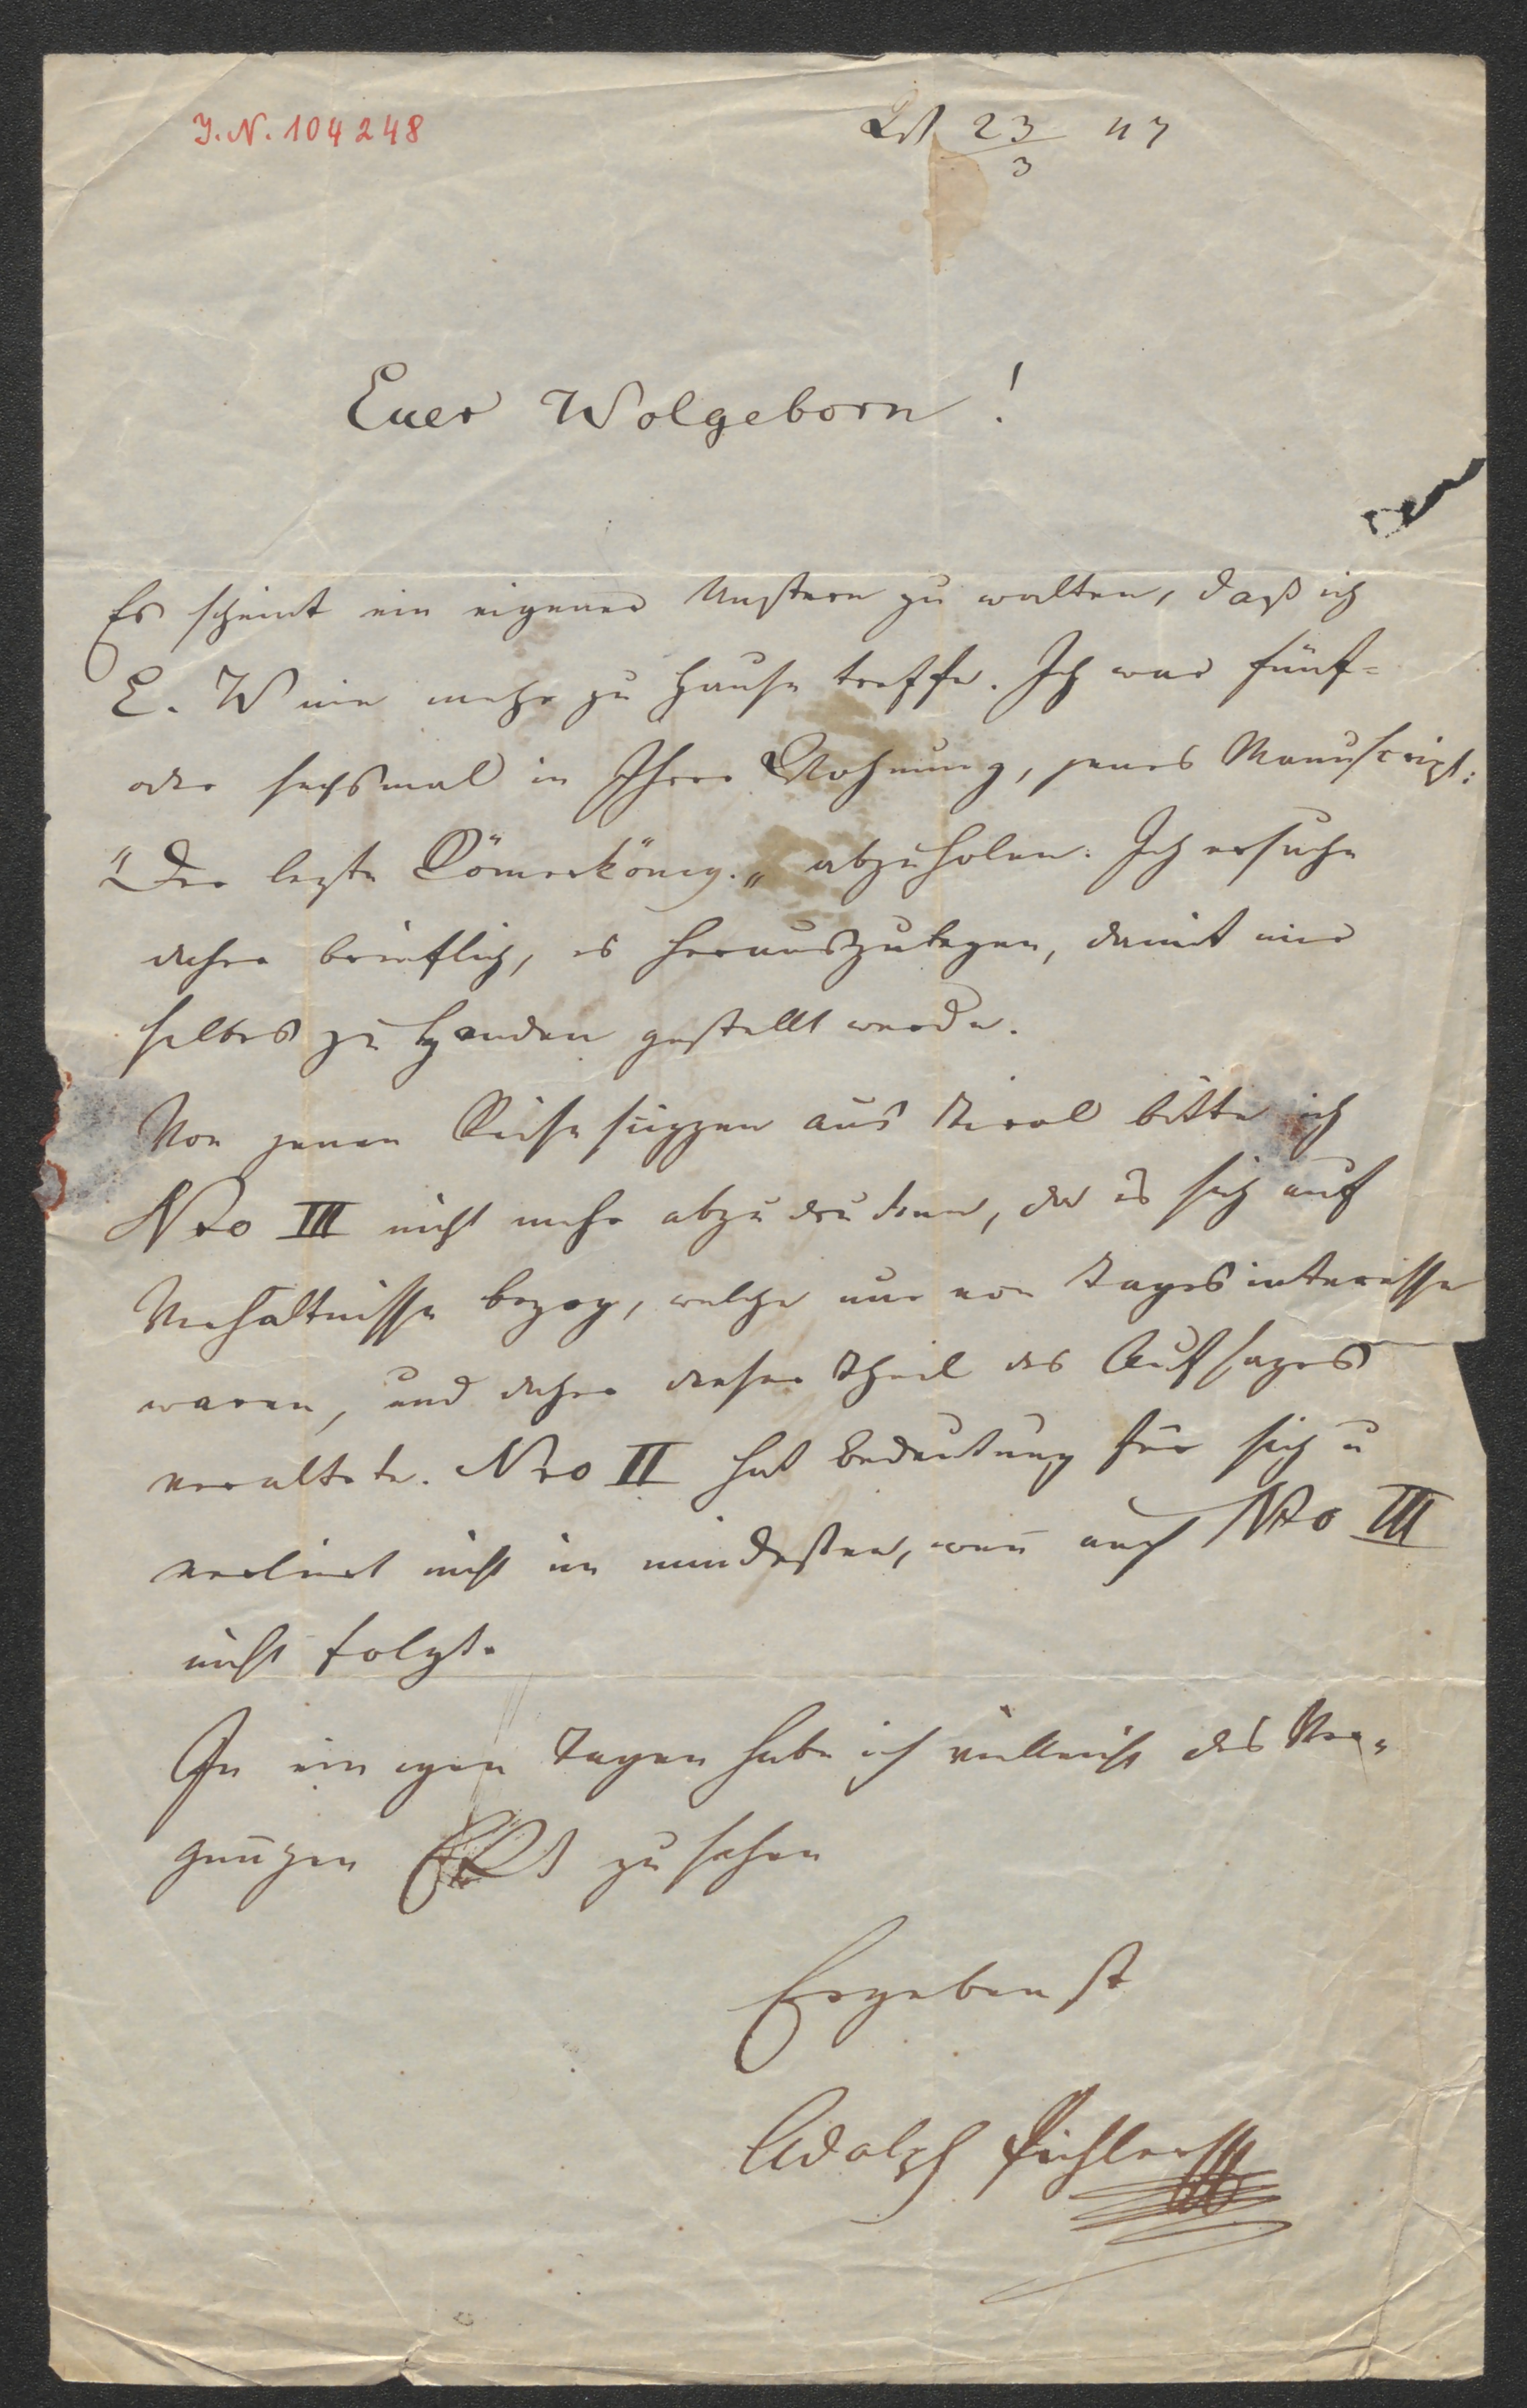 J.N. 104248
23/3 47
Euer Wolgeborn!
Es scheint ein eigener Unstern zu walten, daß ich
E. W nie mehr zu Hause treffe. Ich war fünf-
oder sechsmal in Ihrer Wohnung, jenes Manuscript:
"Der lezte Römerkönig." abzuholen. Ich ersuche
daher brieflich, es herauszulegen, damit mir
selbes zu Handen gestellt werde.
Von jenen Reiseskizzen aus Tirol bitte ich
Nro III nicht mehr abzudrucken, da es sich auf
Verhältnisse bezog, welche nur von Tagesinteresse
waren, und daher dieser Theil des Aufsazes
veraltete. Nro II hat Bedeutung für sich u
verliert nicht im mindesten, wen̄ auch Nro III
nicht folgt.
In einigen Tagen habe ich vielleicht das Ver-
gnügen zu sehen
Ergebenst
Adolph Pichler